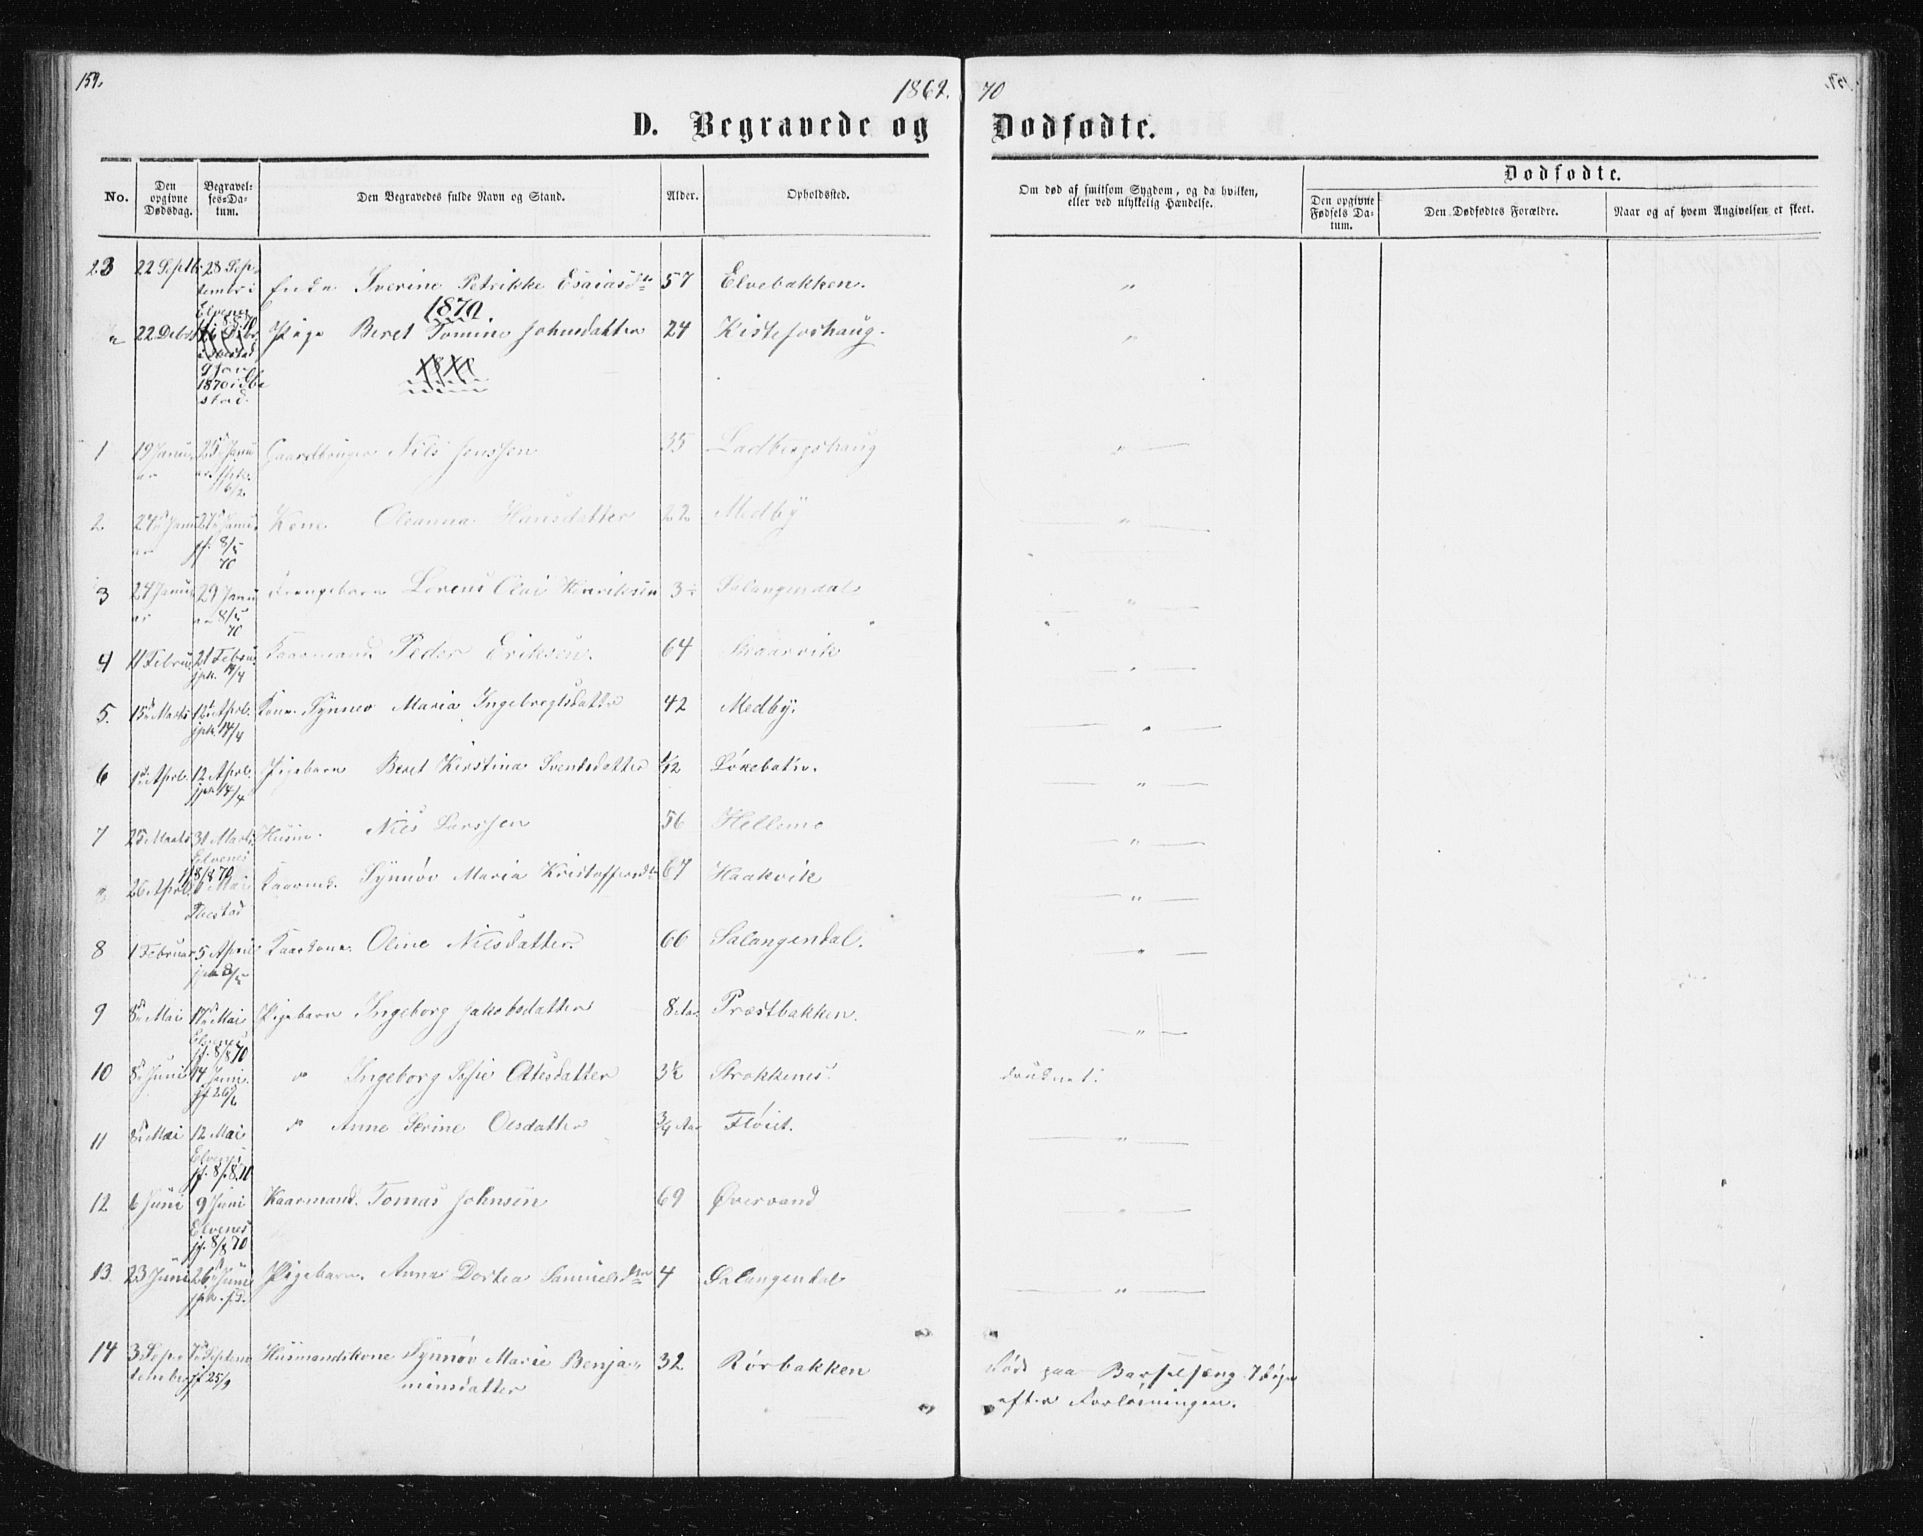 159.
1869. 70
D. Begravede og Dødfødte.
No.
Den opgivne Dødsdag.
Begravelses-Datum.
Den Begravedes fulde Navn og Stand.
Alder.
Opholdssted.
Om død af smitsom Sygdom, og da hvilken, eller ved ulykkelig Hændelse.
Dødfødte.
Den opgivne Fødsels Datum.
Den Dødfødtes Forældre.
Naar og af hvem Angivelsen er skeet.
23 22 Septb. 28 September i Elvenes Enke Sverine Petrikke Esaiasdtr 57 Elvebakken. "
1870.
" 22 Debr Pige Beret Tomine Johnsdatter 24 Kisteforhaug. "
9 Jan 1870 i Ibestad.
1 19 Januar 25 Januar Gaardbruger Nils Jenssen 35 Ladbergshaug "
2 24 Januar 27 Januar jf. 8/5 70 Kone Oleanna Hansdatter 22 Medby "
3 24 Januar 29 Januar 8/5 70 Drengebarn Lorens Olai Henriksen 3 Salangendal "
4 11 Febru 21 Febru jpk. 14/4 Kaarmand Peder Eriksen. 64 Skaarvik "
5. 15 Marts 12 Aprl. jpk. 14/4 Kone Synnev Maria Ingebregtsdatter 42 Medby. "
6 1 Aprl. 12 Aprl. jpk 14/4 Pigebarn Beret Kirstina Sventsdatter 1/12 "
7 25 Marts 31 Marts Elvenes 8/8 70 Husm. Nils Larssen 56 Hellemo "
" 26 Aprl. Mai Ibestad Synnøv Maria Kristoffersdtr 67 Haakvik "
8 1 Februar 5 April jpk 8/5 Kaarkone Oline Nilsdatter. 66 Salangendal. "
9 8 Mai 17 Mai Elvenes jf. 8/8 70 Pigebarn Ingeborg Jakobsdatter 8 Aar Præstbakken. "
10 8 Juni 14 Juni. jf 26/6 " Ingeborg Sofie Olesdatter 3½ Strokkenes druknet.
11 8 Mai 12 Mai Elvenes jf. 8/8.70 " Anne Serine Olsdatter 3/4 Aar Fløiet. "
12 6 Juni 9 Juni Elvenes jf. 8/8 70 Kaarmand. Tomas Johnsen 69 Øvervand "
13. 23 Juni 26 Juni jpk. s.D. Pigebarn. Anna Dortea Samuelsdtr 4 Salangendal "
14 3 September 7 Septem jf 25/9 Husmandskone Synnøv Marie Benja- 32 Rørbakken Død paa Barselseng 7 Døgn
minsdatter efter Forløsningen.